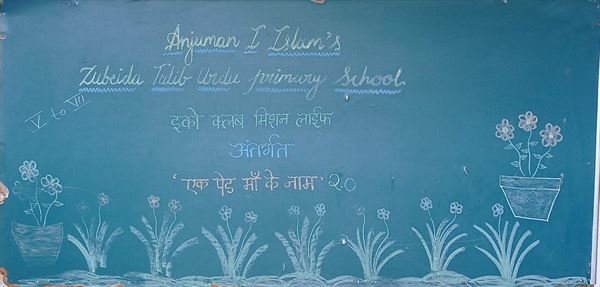 Anjuman I Islam's
Zubeida Talib Urdu primary School
V to VII
इको क्लब मिशन लाईफ
अंतर्गत
'एक पेड माँ के नाम' २.०